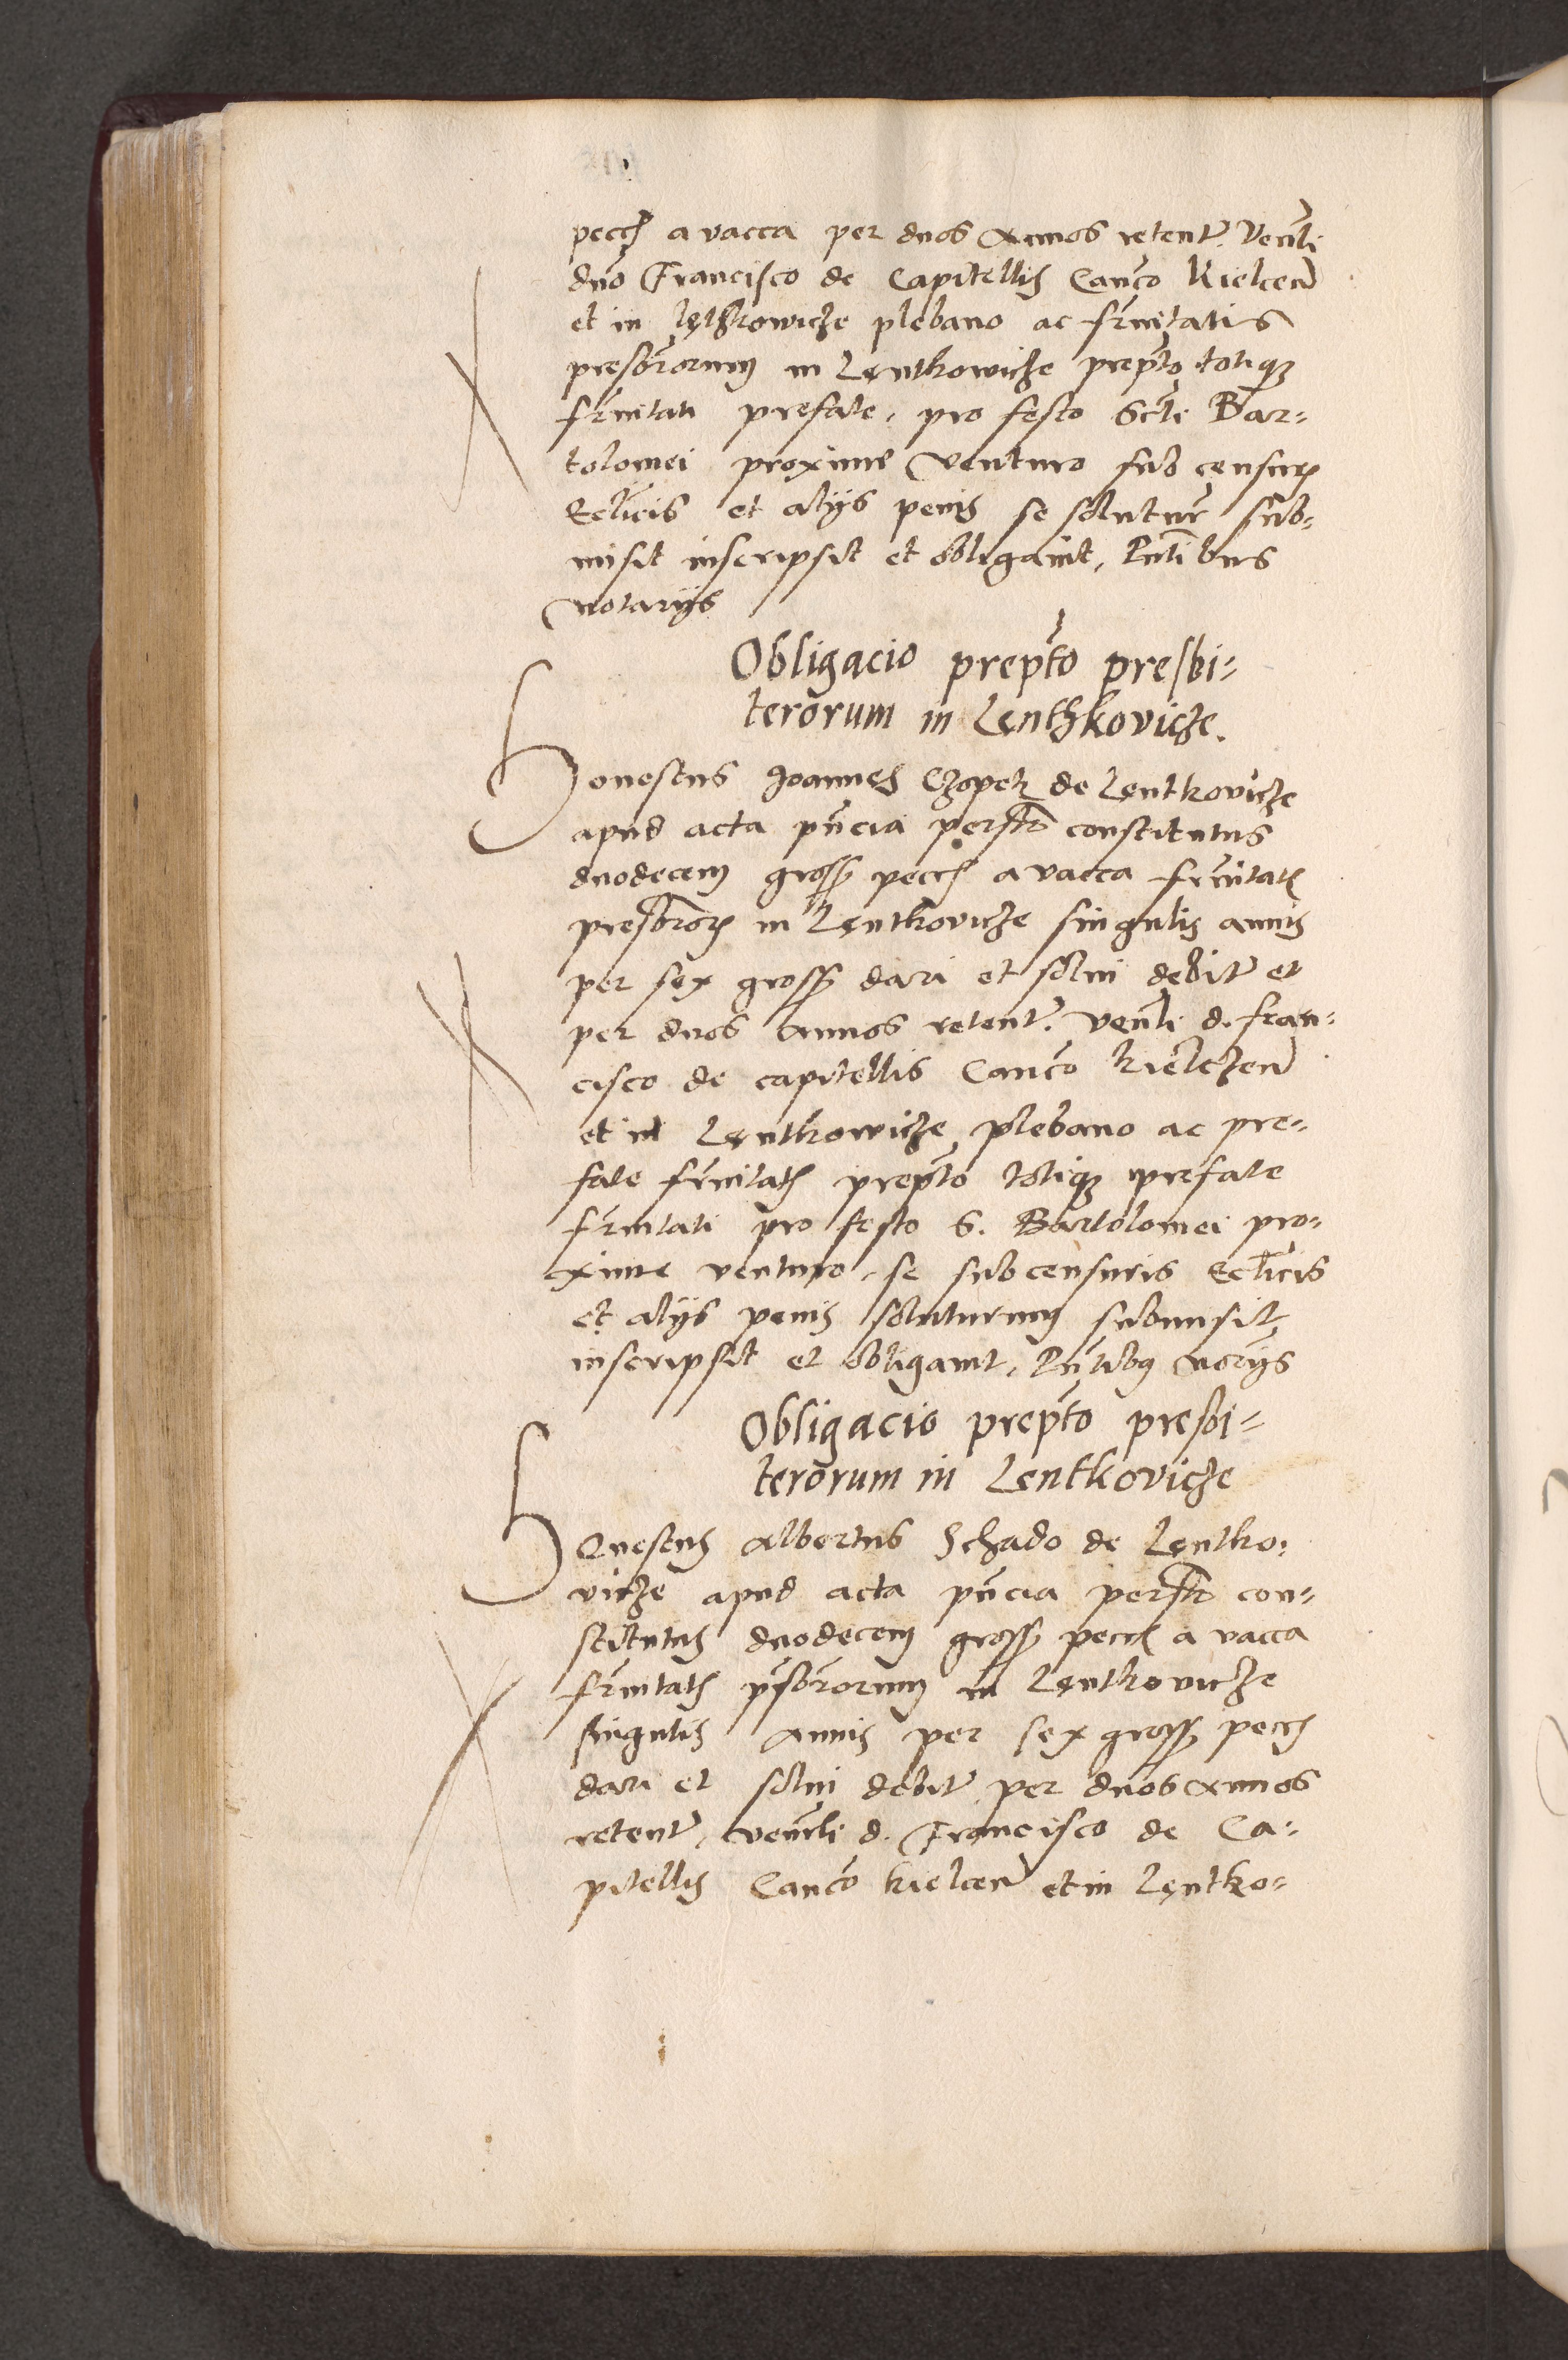 pecc a vacca per duos Annos retent Venli
dno Francisco de Capitellis Canco Kielcen
et in Lęthkowicze plebano ac frnitatis
presbrorum in Lęntkowicze prepto totiqz
frnitati prefate, pro festo Scti Bar-
tolomei proxime venturo sub censuris
Eclicis et alijs penis se soluturum sub-
misit inscripsit et obligauit, Pntibus
Notarijs
Obligacio prepto presbi-
terorum in Lęnthkovicze.
Honestus Joannes Czopek de Lęntkovicze
apud acta pncia personalr constitutus
duodecem gross pecc a vacca frnitatis
presbror in Lęntkovicze singulis annis
per sex gross dari et solui debit et
per duos Annos retent. Venli d. Fran-
cisco de capitellis Canco Kielczen
et in Lęntkowicze plebano ac pre-
fate frnitatis prepto totiqz prefate
frnitati pro festo S. Bartolomei pro-
xime venturo, se sub censuris Eclicis
et alijs penis soluturum submisit
inscripsit et obligauit, Pntibus norijs
Obligacio prepto presbi-
terorum in Lentkovicze
Honestus Albertus Schado de Lęntko-
vicze apud acta pncia personalr con-
stitutus duodecem gross pecc a vacca
frnitatis psbrorum in Lęntkovicze
singulis Annis per sex gross pecc
dari et solui debit per duos Annos
retent, venrli d. Francisco de Ca-
pitellis Canco Kielcen et in Lęntko-